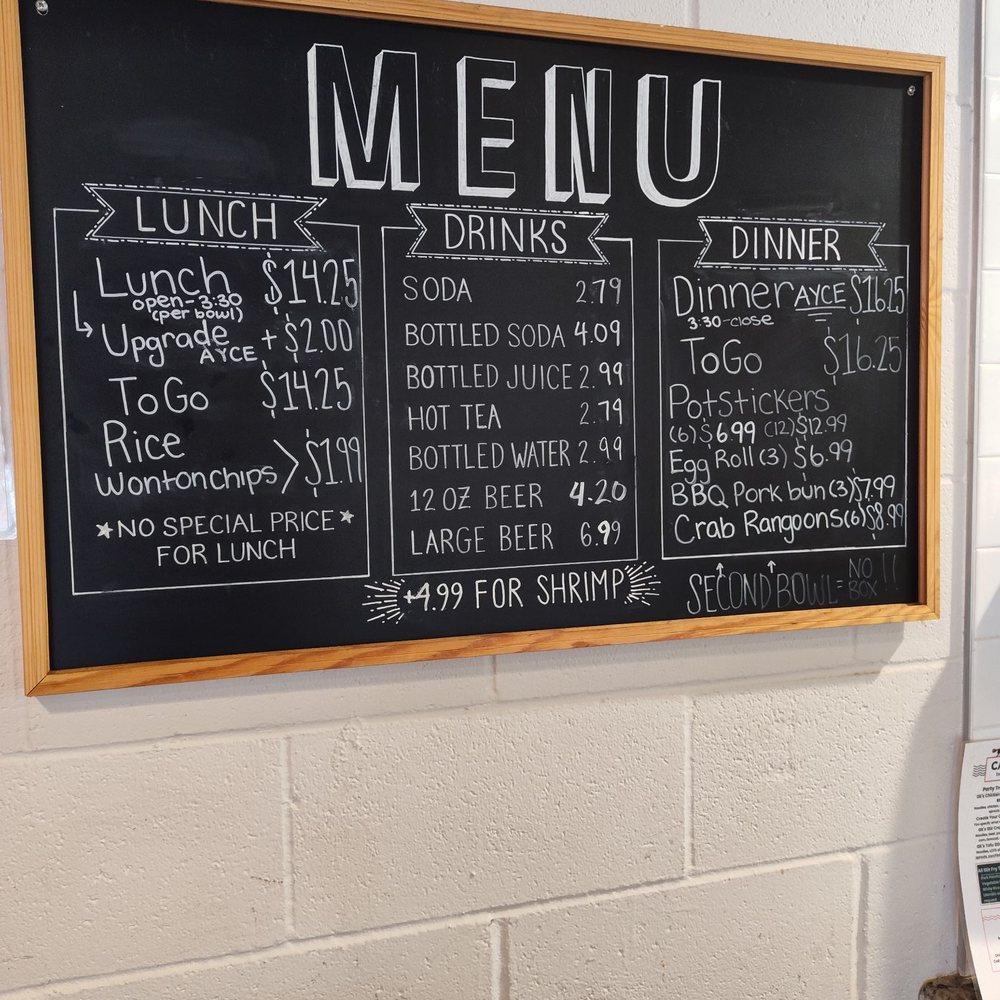 MENU
LUNCH
Lunch $14.25
open-3:30
(per bowl)
Upgrade + $2.00
AYCE
ToGo $14.25
Rice
Wontonchips > $1.99
*NO SPECIAL PRICE*
FOR LUNCH
DRINKS
SODA 2.79
BOTTLED SODA 4.09
BOTTLED JUICE 2.99
HOT TEA 2.79
BOTTLED WATER 2.99
12 OZ BEER 4.20
LARGE BEER 6.99
+4.99 FOR SHRIMP
DINNER
Dinner AYCE $16.25
3:30-close
ToGo $16.25
Potstickers
(6) $6.99 (12) $12.99
Egg Roll (3) $6.99
BBQ Pork bun (3) $7.99
Crab Rangoons (6) $8.99
SECOND BOWL = NO BOX!!
Party
Create Your